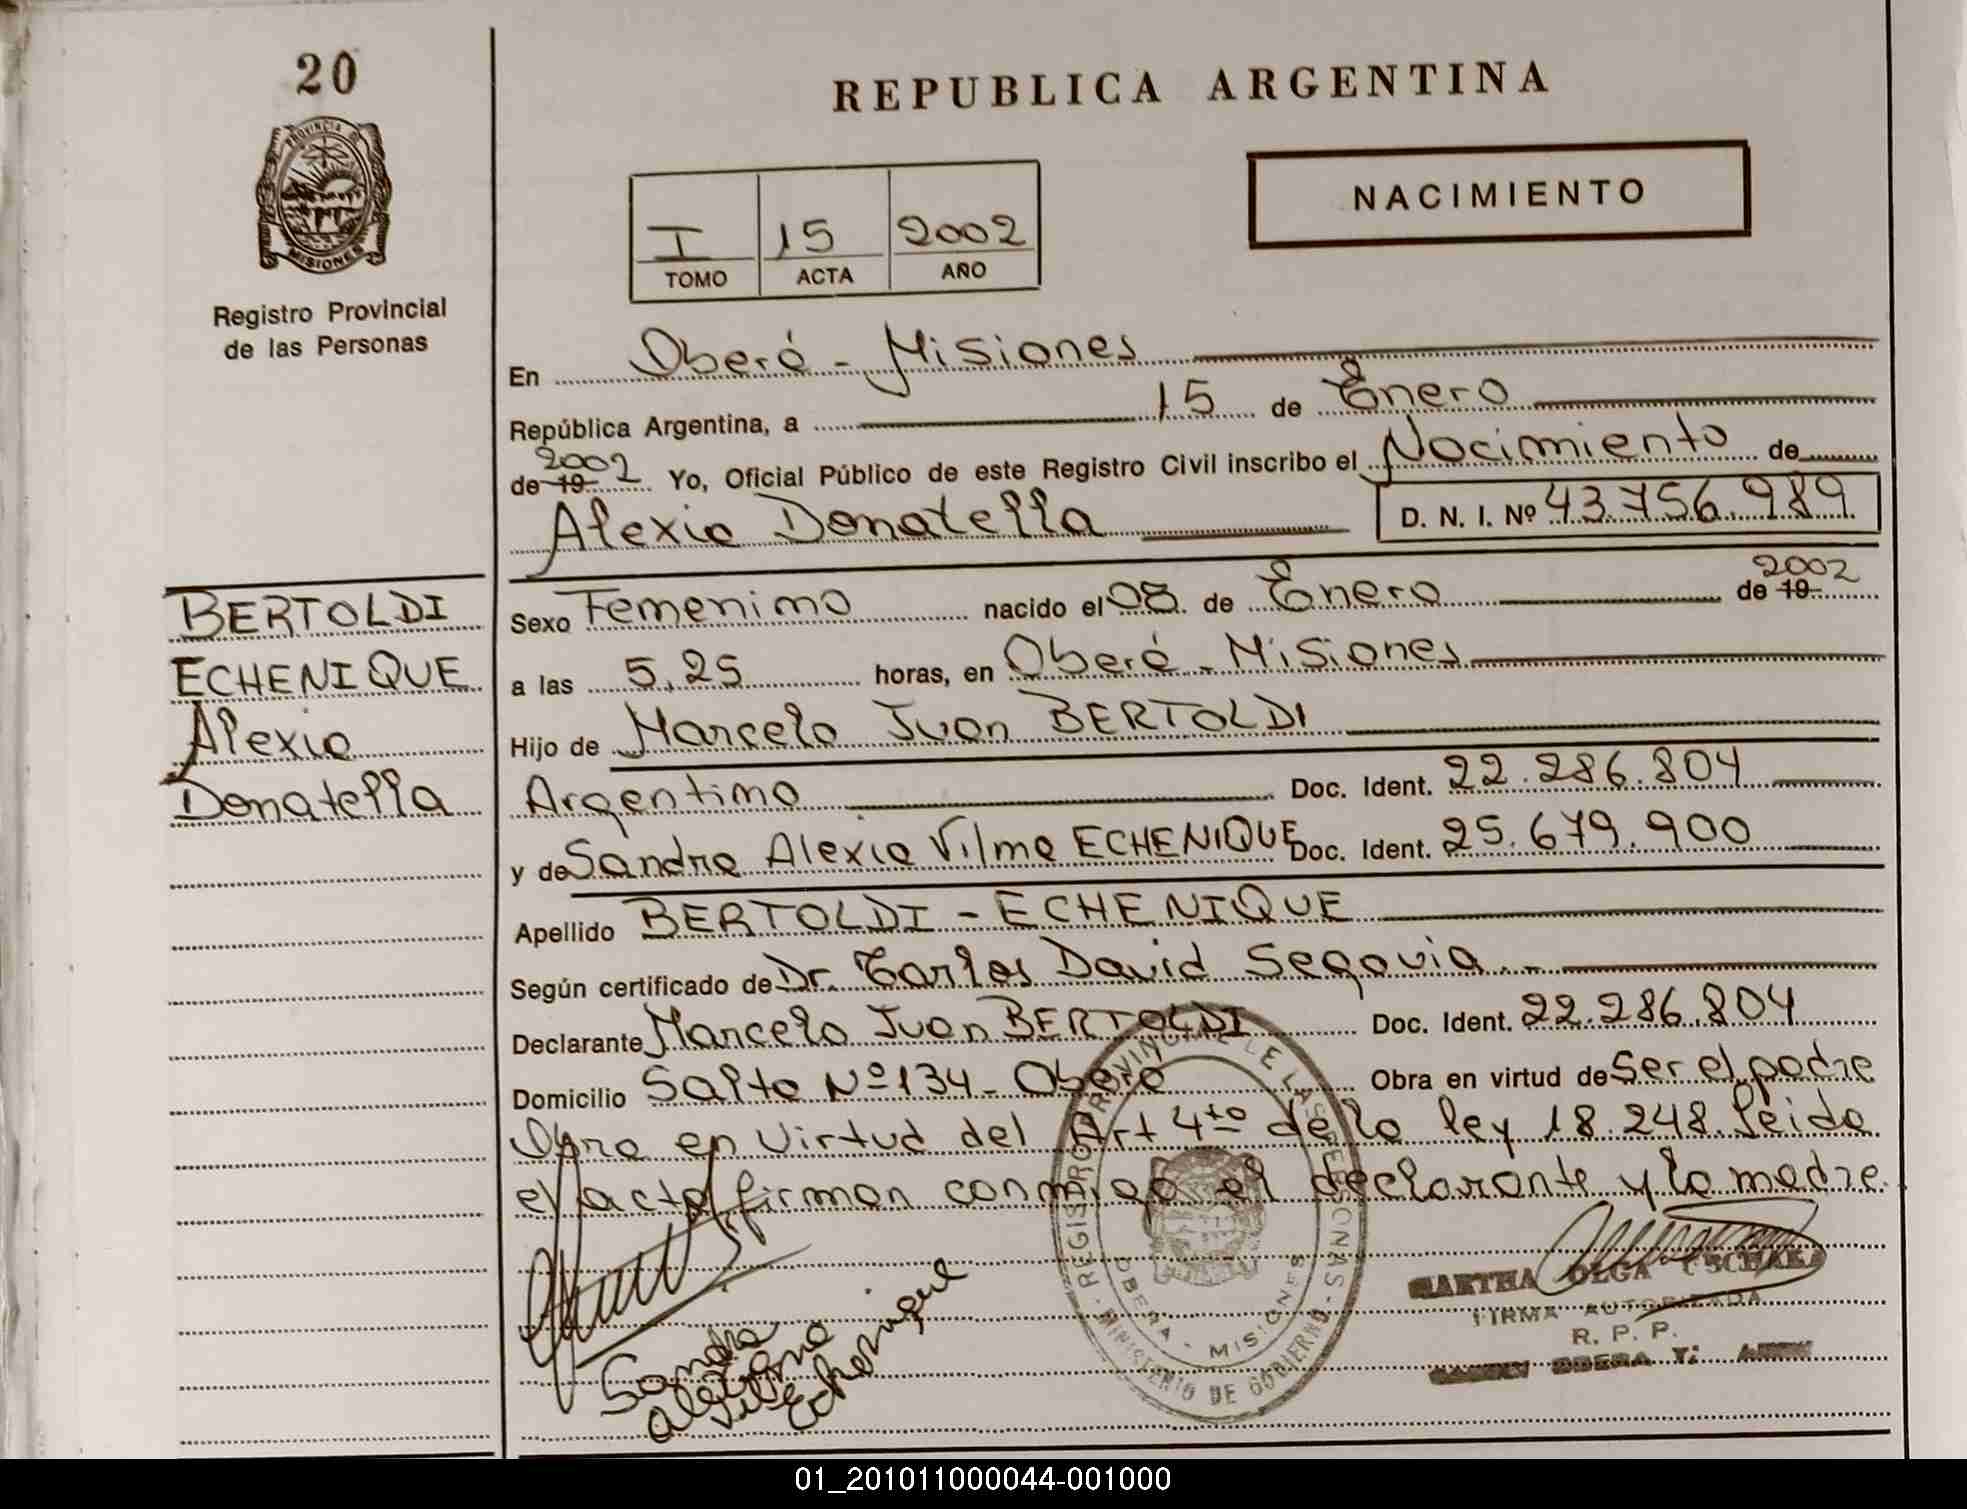 20
REPUBLICA ARGENTINA
PROVINCIA D
MISIONES
Registro Provincial
de las Personas
NACIMIENTO
I 15 2002
TOMO ACTA AÑO
En Oberá - Misiones
República Argentina, a 15 de Enero
de 19 2002 Yo, Oficial Público de este Registro Civil inscribo el Nacimiento de
Alexia Donatella D. N. I. Nº 43.756.989
BERTOLDI
ECHENIQUE
Alexia
Donatella
Sexo Femenino nacido el 08 de Enero de 19 2002
a las 5,25 horas, en Oberá - Misiones
Hijo de Marcelo Juan BERTOLDI
Argentino Doc. Ident. 22.286.804
y de Sandra Alexia Vilma ECHENIQUE Doc. Ident. 25.679.900
Apellido BERTOLDI - ECHENIQUE
Según certificado de Dr. Carlos David Segovia
Declarante Marcelo Juan BERTOLDI Doc. Ident. 22.286.804
Domicilio Salto Nº 134 - Oberá Obra en virtud de Ser el padre
Obra en virtud del Art 4to de la ley 18.248. Leida
el acta firman conmigo el declarante y la madre.
REGISTRO PROVINCIAL DE LAS PERSONAS
OBERA - MISIONES
MINISTERIO DE GOBIERNO
Sandra
Vilma
Echenique
OLGA
FIRMA AUTORIZADA
R. P. P.
OBERA
01_201011000044-001000